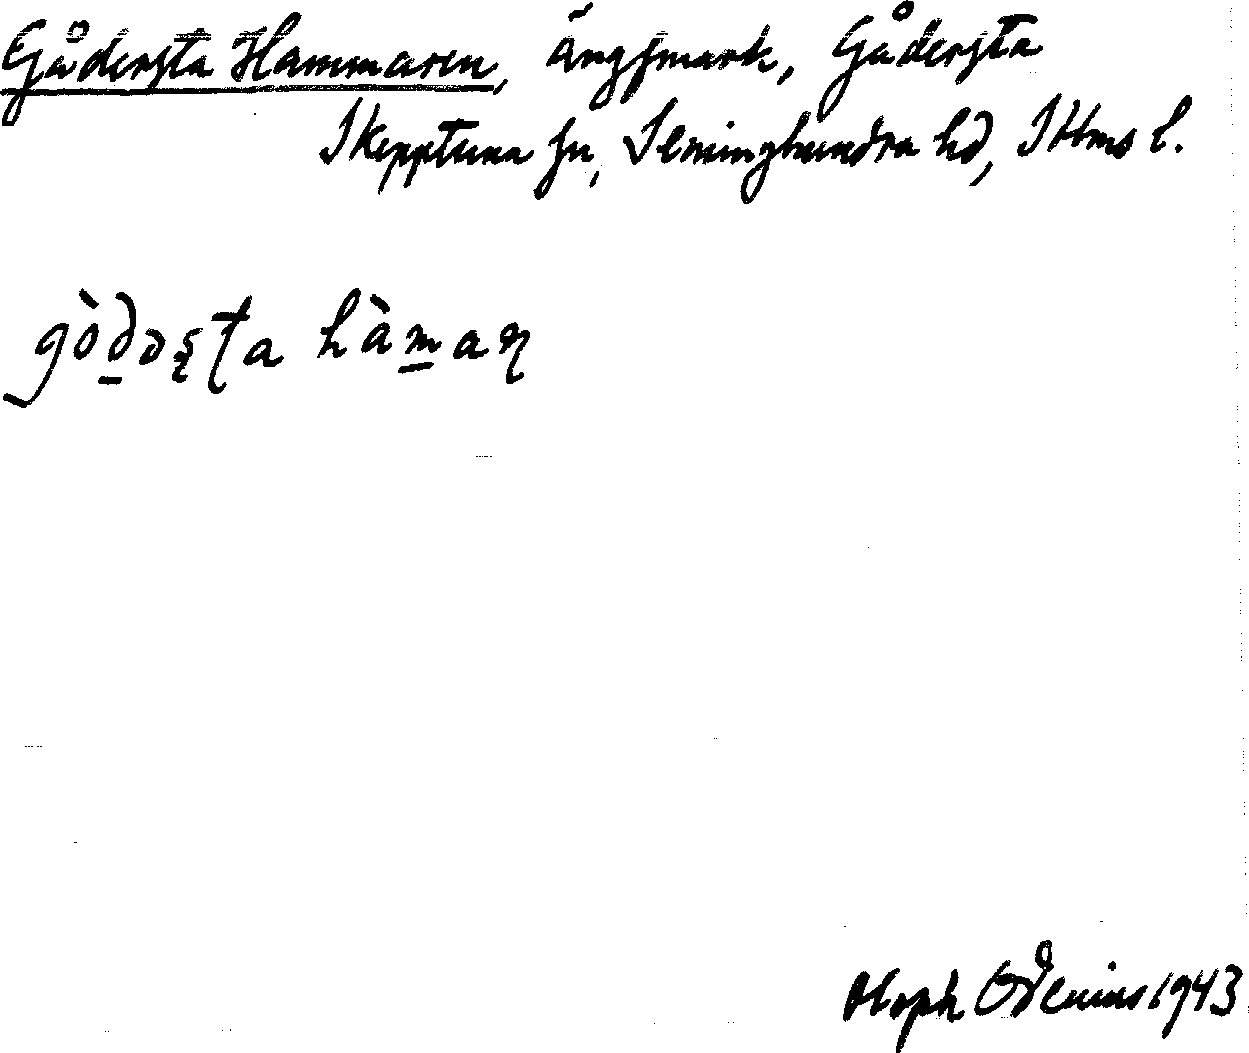 Gådersta Hammaren, Ängsmark, Gådersta
Skepptuna sn, Seminghundra hd, Sthms l.
gòd̲əʂʈa hàm̲aɳ
Oloph Odenius 1943